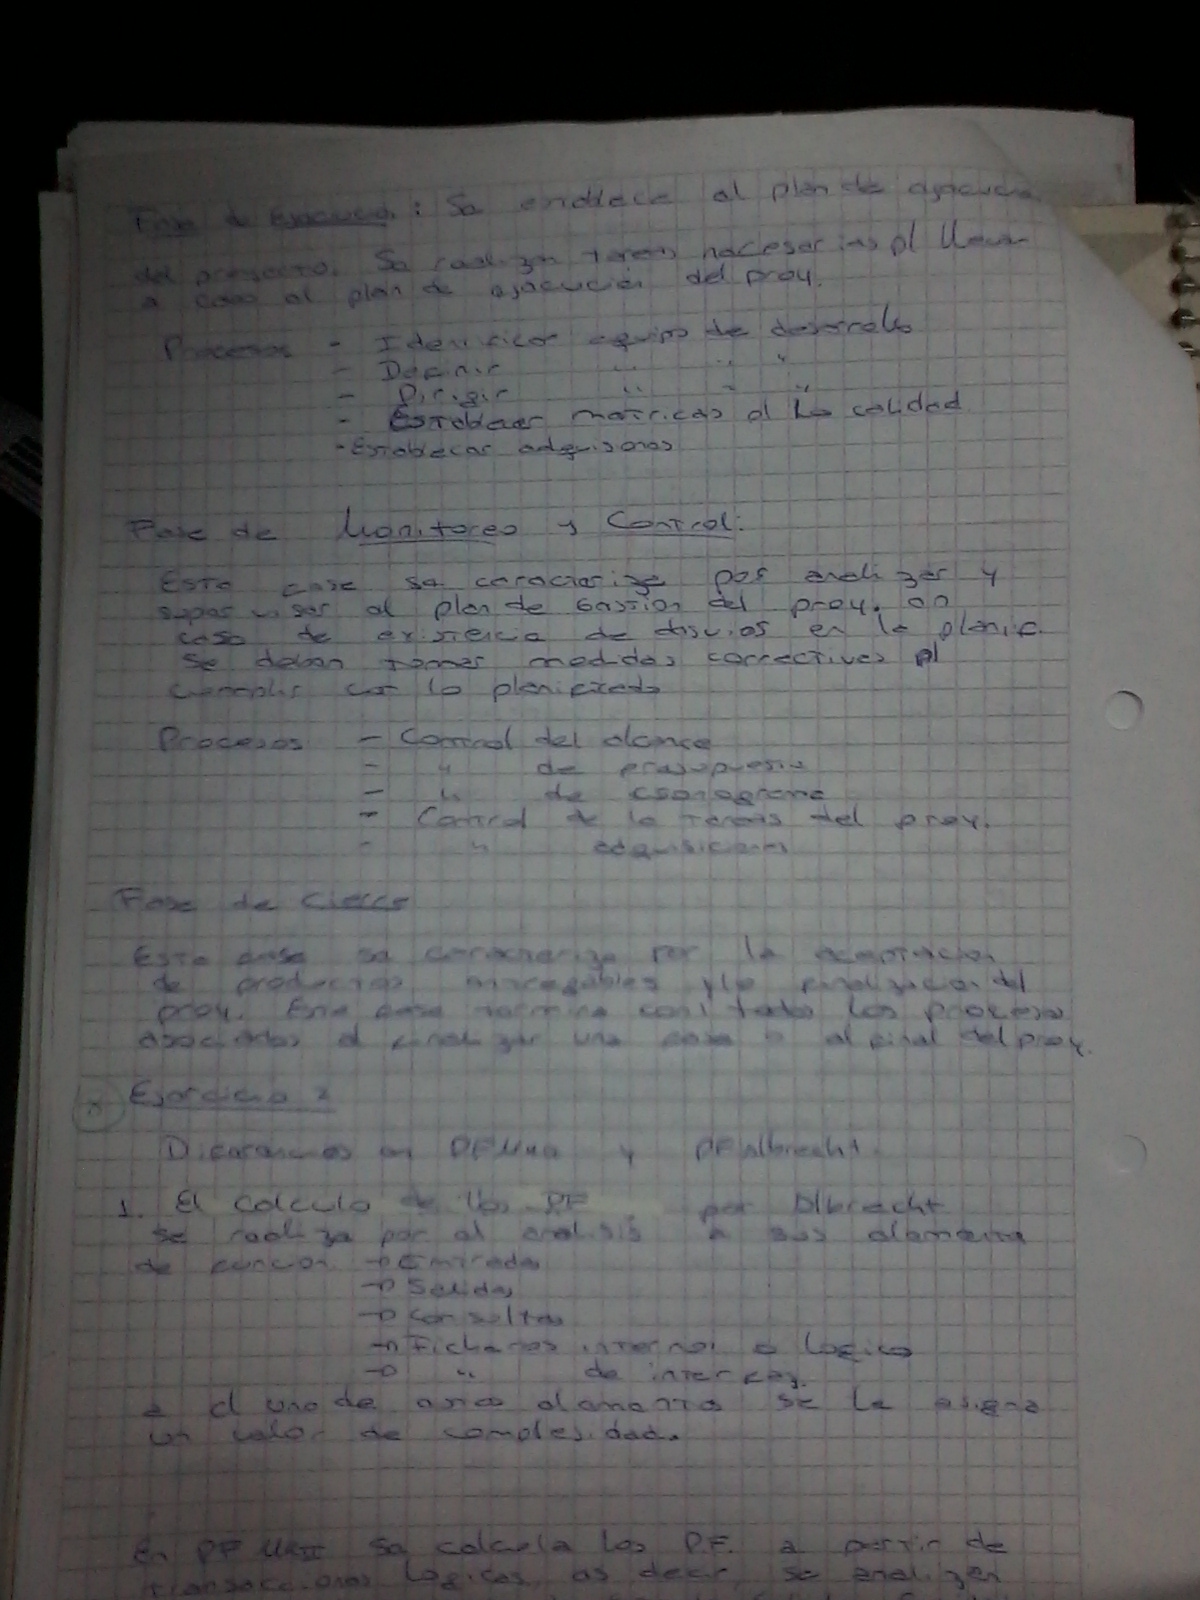 Fase de Ejecucion: Se endlece al plan de ejecucion
del proyecto. Se realizan tareas necesarias p/ llevar
a cabo al plan de ejecución del proy.
Procesos - Identificar equipo de desarrollo
- Definir " " "
- Dirigir " " "
- Establecer metricas d la calidad
- Establecer
Fase de Monitoreo y Control:
Esta fase se caracteriza por analizar y
supervisar al plan de Gestion del proy. en
caso de existencia de desvios en la planif.
se deben tomar medidas correctivas p/
cumplir con lo planificado
Procesos - Control del alcance
- " de presupuesto
- " de cronograma
- Control de la tareas del proy.
- " adquisiciones
Fase de Cierre
Esta fase se caracteriza por la aceptacion
de productos entregables y la finalizacion del
proy. Esta fase termina con todos los procesos
asociados a finalizar una fase o al final del proy.
Ejercicio 2
Diferencias en PF MKII y PF Albrecht.
1. El calculo de los PF por Albrecht
se realiza por al analisis a sus elementos
de funcion → Entradas
→ Salidas
→ Consultas
→ Ficheros internos o logico
→ " de interfaz.
a c/ uno de estos elementos se le asigna
un valor de complejidad.
En PF MKII se calcula los P.F. a partir de
transacciones logicas, es decir, se analizan